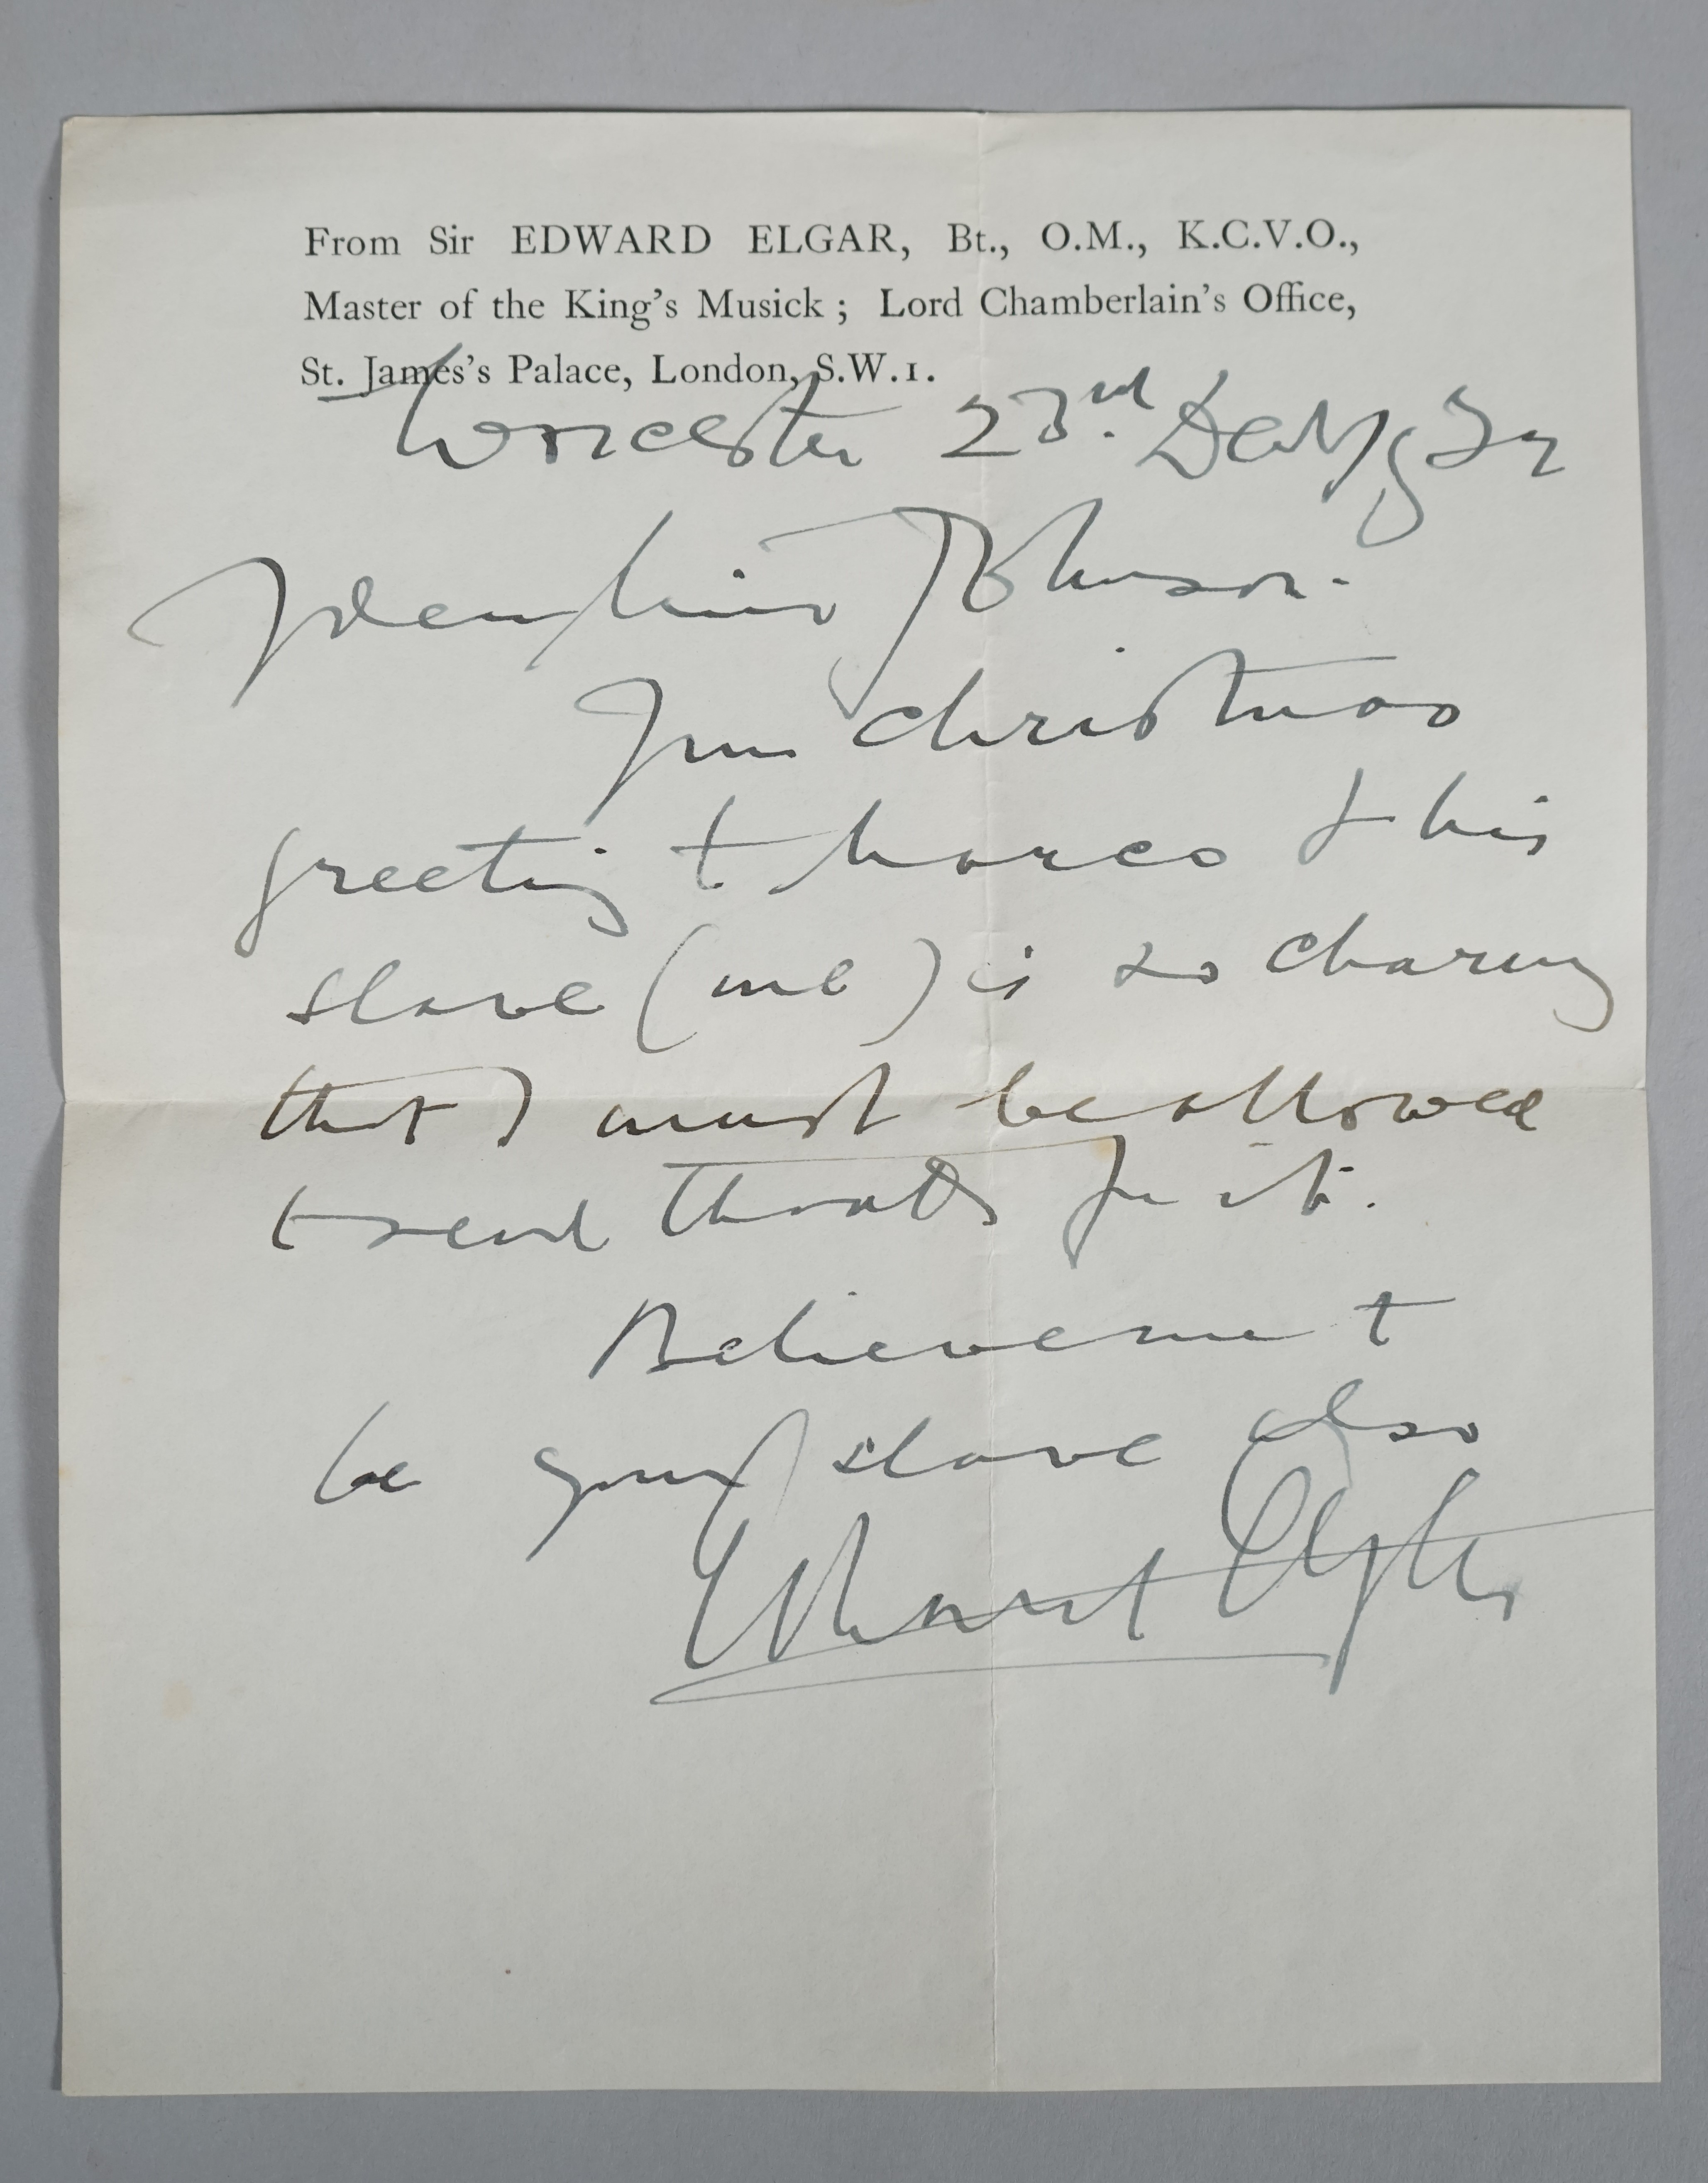 From Sir EDWARD ELGAR, Bt., O.M., K.C.V.O.,
Master of the King's Musick ; Lord Chamberlain's Office,
St. James's Palace, London, S.W.1.
Worcester 23rd
Dear Miss Johnson.
Your Christmas
greeting to Marco & his
slave (me) is so charming
that I must be allowed
to send thanks for it.
Believe me to
be your slave also
Edward Elgar